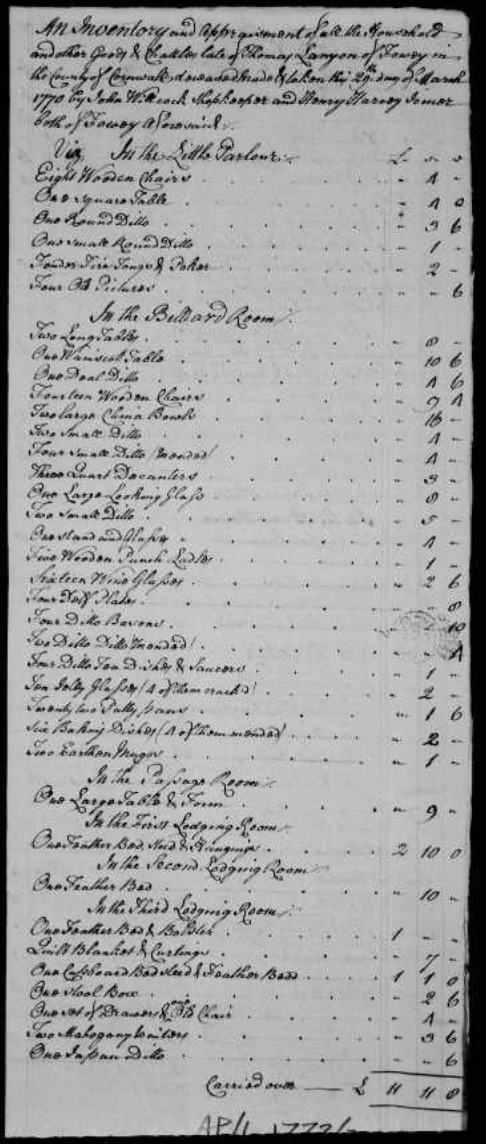 An Inventory and Appraisement of all the Household
and other Goods & Chattles late of Thomas Lanyon of Fowey in
the County of Cornwall deceased made & taken this 29th day of March
1770 by John Willcock Shopkeeper and Henry Harvey Joiner
both of Fowey Aforesaid.
Viz In the Little Parlour £ s d
Eight Wooden Chairs - 4 -
One Square Table - 4 0
One Round Ditto - 3 6
One Small Round Ditto - 1 -
Fender Fire Tongs & Poker - 2 -
Four Old Pictures - - 6
In the Billiard Room
Two Long Tables - 8 -
One Wainscott Table - 10 6
One Deal Ditto - 4 6
Fourteen Wooden Chairs - 9 4
Two large China Bowls - 16 -
Two Small Ditto - 4 -
Four Small Ditto (Mended) - 4 -
Three Quart Decanters - 3 -
One Large Looking Glass - 8 -
Two Small Ditto - 5 -
One stand and Glasses - 4 -
Five Wooden Punch Ladles - 1 -
Sixteen Wine Glasses - 2 6
Four Delf Plates 8
Four Ditto Basons 10
Two Ditto Ditto (mended) 4
Four Ditto Tea Dishes & Saucers - 1 -
Ten Jelly Glasses (4 of them crack'd) - 2 -
Twenty two Patty pans - 1 6
Six Baking Dishes (4 of them mended) - 2 -
Two Earthen Muggs - 1 -
In the Passage Room
One Large Table & Form - 9 -
In the First Lodging Room
One Feather Bed sted & Hangings 2 10 0
In the Second Lodging Room
One Feather Bed - 10 -
In the Third Lodging Room
One Feather Bed & Bolster 1 - -
Quilt Blanket & Curtings - 7 -
One Cubboard Bed sted & Feather Bedd 1 1 0
One Stool Box - 2 6
One set of Drawers & one Old Chair - 4 -
Two Mahogany Waiters - 3 6
One Ditto - - 6
Carried over £ 11 11 8
AP/L 1772/